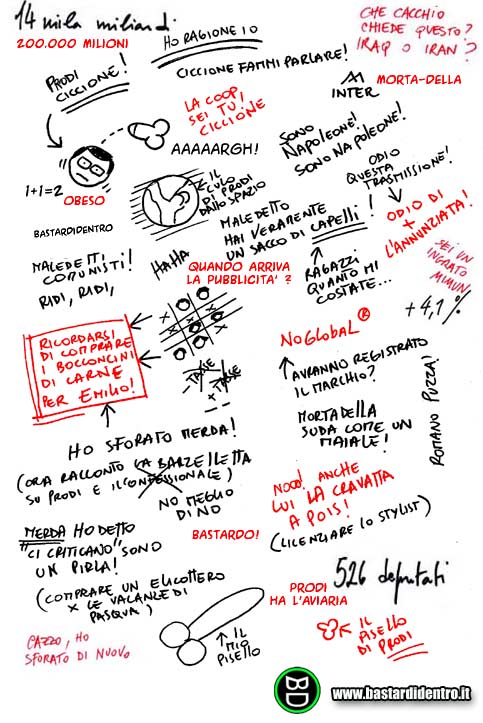 14 mila miliardi
200.000 MILIONI
HO RAGIONE IO
CICCIONE FAMMI PARLARE!
CHE CACCHIO
CHIEDE QUESTO?
IRAQ O IRAN?
PRODI
CICCIONE!
LA COOP,
SEI TU!
CICCIONE
INTER
MORTA-DELLA
AAAAARGH!
SONO
NAPOLEONE!
SONO NAPOLEONE!
1+1=2
OBESO
IL
CULO
DI PRODI
DALLO SPAZIO
ODIO
QUESTA
TRASMISSIONE!
ODIO DI
+
L'ANNUNZIATA!
BASTARDIDENTRO
MALEDETTO
HAI VERAMENTE
UN SACCO DI CAPELLI!
MALEDETTI
COMUNISTI!
RIDI, RIDI,
HAHA
QUANDO ARRIVA
LA PUBBLICITA' ?
RAGAZZI
QUANTO MI
COSTATE...
SEI UN
INGRATO
MIMUN
+4,1%
RICORDARSI
DI COMPRARE
I BOCCONCINI
DI CARNE
PER EMILIO!
- TASSE
+ TASSE
NO GLOBAL ®
AVRANNO REGISTRATO
IL MARCHIO?
MORTADELLA
SUDA COME UN
MAIALE!
ROMANO PUZZA!
HO SFORATO MERDA!
(ORA RACCONTO LA BARZELLETTA
SU PRODI E IL CONFESSIONALE)
NO MEGLIO
DI NO
NOOO! ANCHE
LUI LA CRAVATTA
A POIS!
(LICENZIARE LO STYLIST)
MERDA HO DETTO
"CI CRITICANO" SONO
UN PIRLA!
BASTARDO!
(COMPRARE UN ELICOTTERO
X LE VACANZE DI
PASQUA)
526 deputati
PRODI
HA L'AVIARIA
CAZZO, HO
SFORATO DI NUOVO
IL MIO
PISELLO
IL
PISELLO
DI PRODI
www.bastardidentro.it